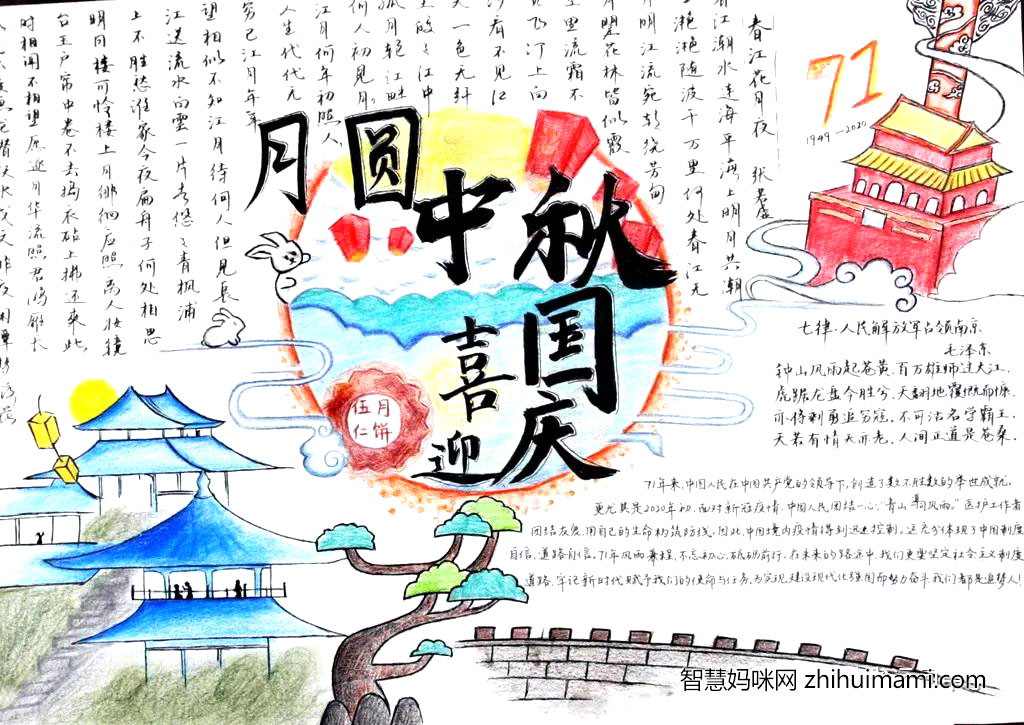 春江花月夜 张若虚
江潮水连海平海上明月共潮
滟滟随波千万里何处春江无
月明江流宛转绕芳甸
月照花林皆似霰
空里流霜不
飞汀上白
沙看不见江
天一色无纤
皎々江中
孤月轮江畔
何人初见月。
江月何年初照人
人生代代无
穷已江月年年
望相似不知江月待何人但见长
江送流水白云一片去悠々青枫浦
上不胜愁谁家今夜扁舟子何处相思
明月楼可怜楼上月徘徊应照离人妆镜
台玉户帘中卷不去捣衣砧上拂还来此
时相闻不相望愿逐月华流照君鸿雁长
月圆
中秋
喜迎
国庆
伍月
仁饼
71
1949—2020
七律·人民解放军占领南京
毛泽东
钟山风雨起苍黄,百万雄师过大江.
虎踞龙盘今胜昔,天翻地覆慨而慷.
宜将剩勇追穷寇,不可沽名学霸王.
天若有情天亦老,人间正道是苍桑.
71年来,中国人民在中国共产党的领导下,创造了数不胜数的举世成就.
更尤其是2020年初,面对新冠疫情,中国人民团结一心,"青山一道同风雨."医护工作者
团结友爱,用自己的生命构筑防线。因此,中国境内疫情得到迅速控制。这充分体现了中国制度
自信,道路自信。71年风雨兼程,不忘初心,砥砺前行。在未来的路途中,我们更要坚定社会主义制度
道路,牢记新时代赋予我们的使命与任务,为实现建设现代化强国而努力奋斗,我们都是追梦人!
智慧妈咪网 zhihuimami.com